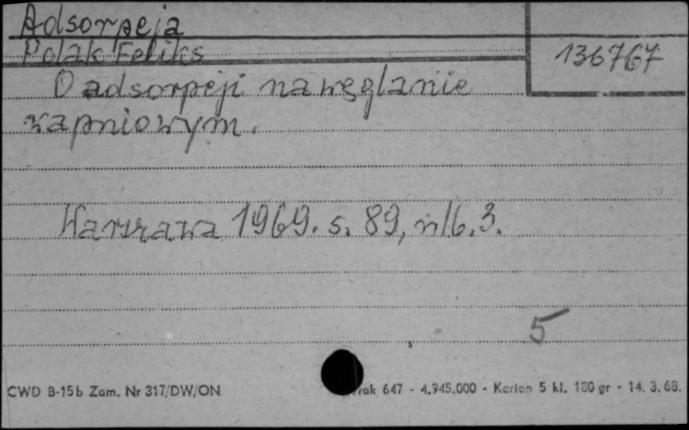 Adsorpcja
Polak Feliks
136767
O adsorpcji na węglanie
wapniowym.
Warszawa 1969. s. 89, nlb. 3.
5
CWD B-15b Zam. Nr 317/DW/ON
647 - 4.945.000 - Karton 5 kl. 180 gr - 14. 3. 68.